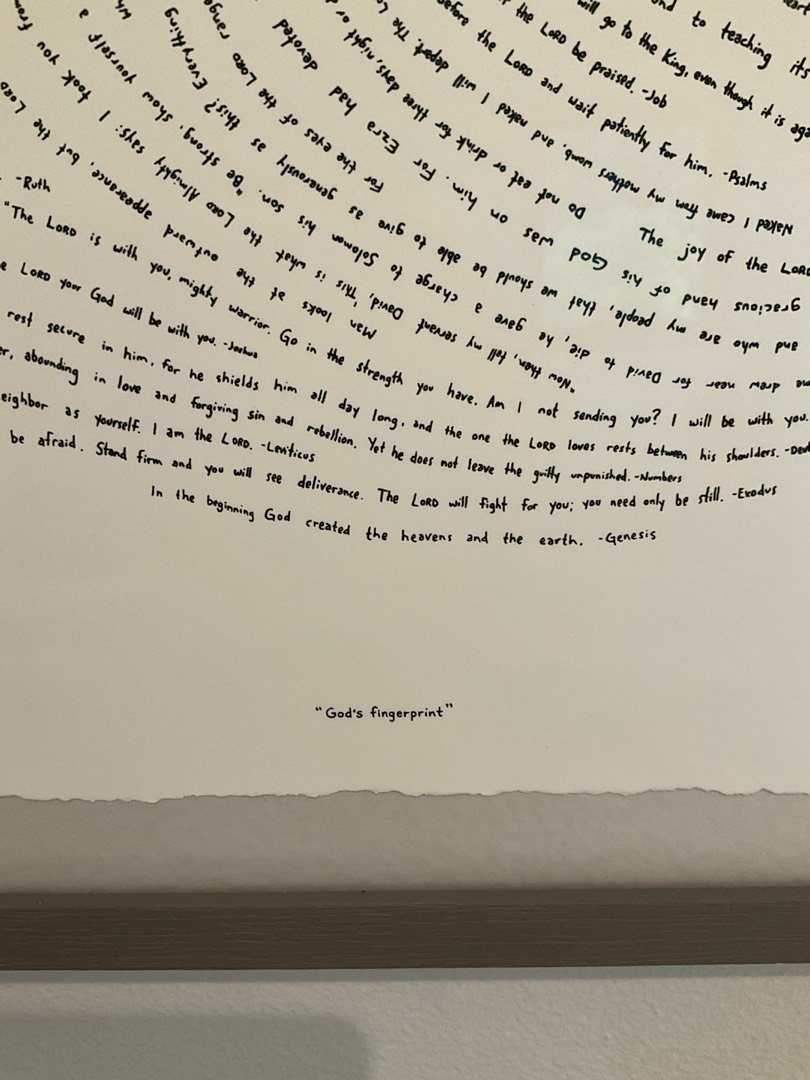 to teaching its
will go to the King, even though it is
the LORD be praised. -Job
the LORD and wait patiently for him. -Psalms
Naked I came from my mothers womb, and naked I will depart. The
The joy of the LORD
Do not eat or drink for three days, night or
For the eyes of the LORD range
gracious hand of his God was on him. For Ezra had devoted
and who are my people, that we should be able to give as generously as this? Everything
drew near for David to die, he gave a charge to Solomon his son. "Be strong, show yourself a
"Now then, tell my servent David, 'This is what the LORD Almighty says: I took you from
Man looks at the outward appearance, but the LORD
-Ruth
"The LORD is with you, mighty warrior. Go in the strength you have. Am I not sending you? I will be with you.
LORD your God will be with you. -Joshua
rest secure in him, for he shields him all day long, and the one the LORD loves rests between his shoulders.
abounding in love and forgiving sin and rebellion. Yet he does not leave the guilty unpunished. -Numbers
as yourself. I am the LORD. -Leviticus
be afraid. Stand firm and you will see deliverance. The LORD will fight for you; you need only be still. -Exodus
In the beginning God created the heavens and the earth. -Genesis
"God's fingerprint"